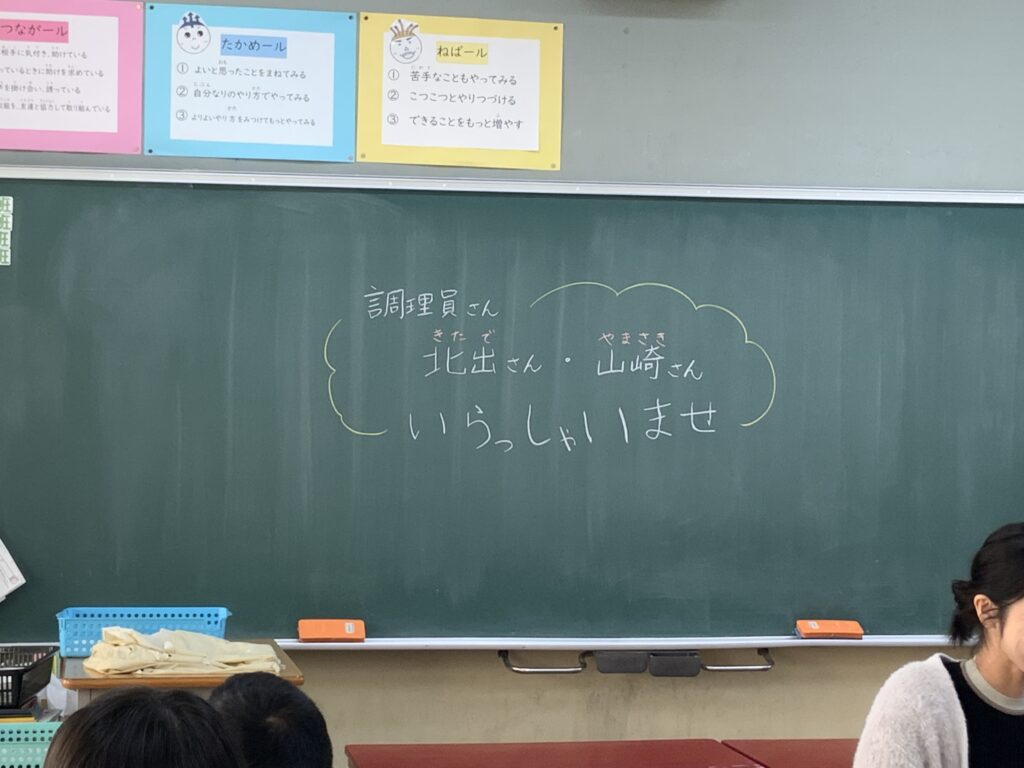 つながール
相手に気付き、助けている
っているときに助けを求めている
を掛け合い、誘っている
友達と協力して取り組んでいる
たかめール
① よいと思ったことをまねてみる
② 自分なりのやり方でやってみる
③ よりよいやり方をみつけてもっとやってみる
ねばール
① 苦手なこともやってみる
② こつこつとやりつづける
③ できることをもっと増やす
班
班
班
班
調理員さん
きたで やまさき
北出さん・山崎さん
いらっしゃいませ